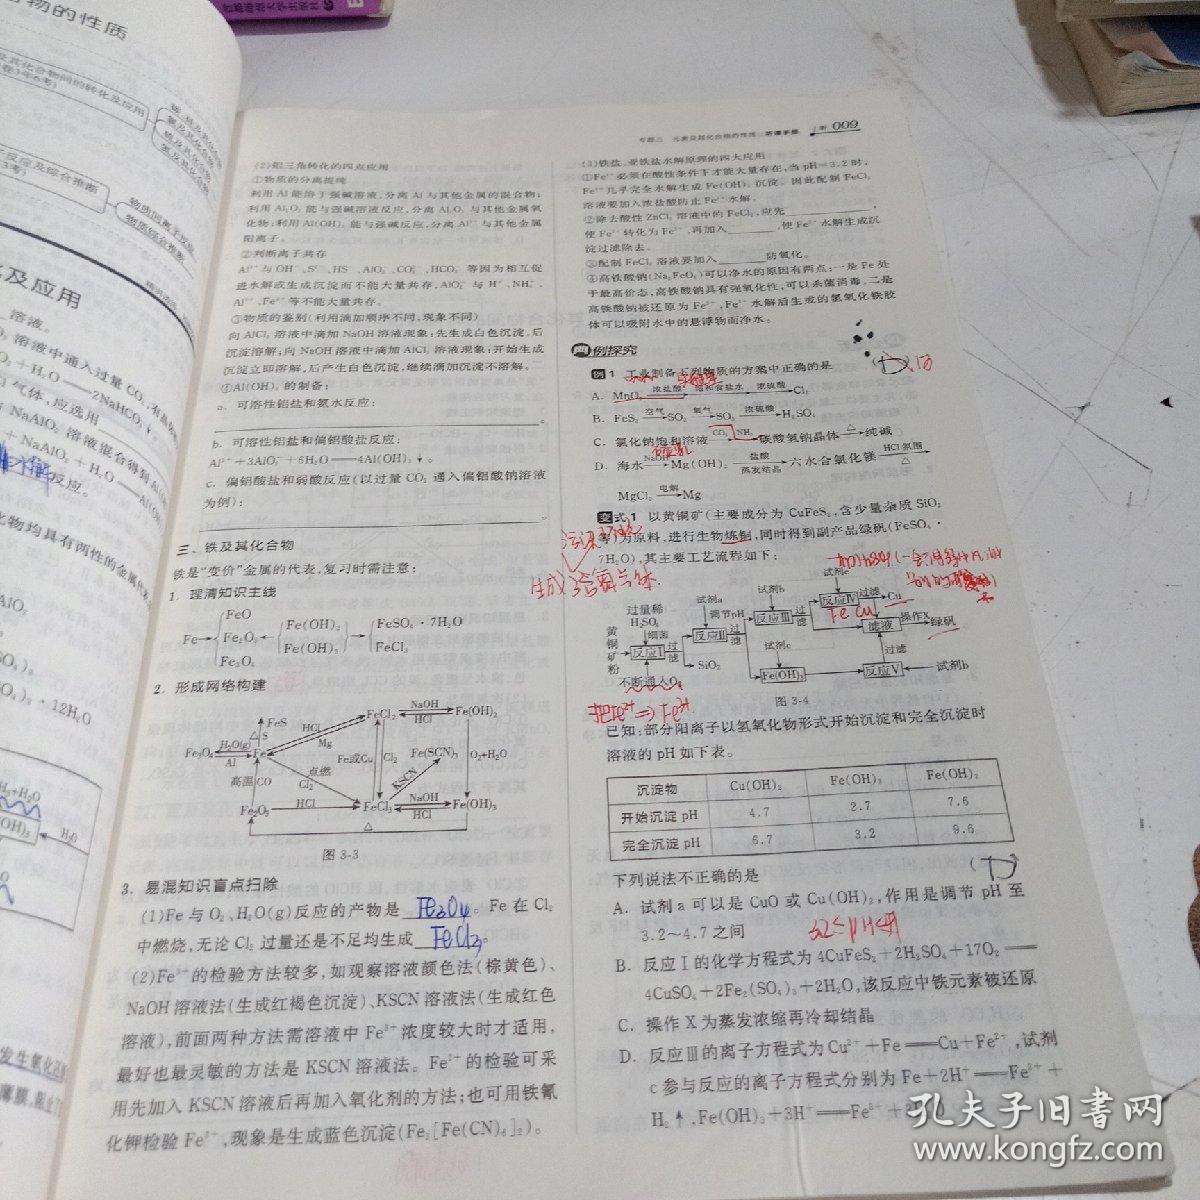 物的性质
及应用
专题三 元素及其化合物的性质 听课手册 听 009
(2)铝三角转化的四点应用
①物质的分离提纯
利用 Al 能溶于强碱溶液,分离 Al 与其他金属的混合物;
利用 Al₂O₃ 能与强碱溶液反应,分离 Al₂O₃ 与其他金属氧
化物;利用 Al(OH)₃ 能与强碱反应,分离 Al³⁺ 与其他金属
阳离子。
②判断离子共存
Al³⁺ 与 OH⁻、S²⁻、HS⁻、AlO₂⁻、CO₃²⁻、HCO₃⁻ 等因为相互促
进水解或生成沉淀而不能大量共存,AlO₂⁻ 与 H⁺、NH₄⁺、
Al³⁺、Fe³⁺ 等不能大量共存。
③物质的鉴别(利用滴加顺序不同,现象不同)
向 AlCl₃ 溶液中滴加 NaOH 溶液现象:先生成白色沉淀,后
沉淀溶解;向 NaOH 溶液中滴加 AlCl₃ 溶液现象:开始生成
沉淀立即溶解,后产生白色沉淀,继续滴加沉淀不溶解。
④Al(OH)₃ 的制备:
a. 可溶性铝盐和氨水反应:
b. 可溶性铝盐和偏铝酸盐反应:
Al³⁺+3AlO₂⁻+6H₂O══4Al(OH)₃↓。
c. 偏铝酸盐和弱酸反应(以过量 CO₂ 通入偏铝酸钠溶液
为例):
三、铁及其化合物
铁是“变价”金属的代表,复习时需注意:
1. 理清知识主线
Fe→ FeO Fe₂O₃ Fe₃O₄ ← Fe(OH)₂ Fe(OH)₃ → FeSO₄·7H₂O FeCl₃
2. 形成网络构建
FeS FeCl₂ NaOH HCl Fe(OH)₂
S HCl Mg
Fe₃O₄ H₂O(g) Al Fe Fe或Cu Cl₂ Fe(SCN)₃ O₂+H₂O
高温 CO 点燃 Cl₂ KSCN
Fe₂O₃ HCl FeCl₃ NaOH HCl Fe(OH)₃
△
图 3-3
3. 易混知识盲点扫除
(1)Fe 与 O₂、H₂O(g)反应的产物是 Fe₃O₄。Fe 在 Cl₂
中燃烧,无论 Cl₂ 过量还是不足均生成 FeCl₃。
(2)Fe³⁺的检验方法较多,如观察溶液颜色法(棕黄色)、
NaOH 溶液法(生成红褐色沉淀)、KSCN 溶液法(生成红色
溶液),前面两种方法需溶液中 Fe³⁺浓度较大时才适用,
最好也最灵敏的方法是 KSCN 溶液法。Fe²⁺的检验可采
用先加入 KSCN 溶液后再加入氧化剂的方法;也可用铁氰
化钾检验 Fe²⁺,现象是生成蓝色沉淀(Fe₃[Fe(CN)₆]₂)。
(3)铁盐、亚铁盐水解原理的四大应用
①Fe³⁺ 必须在酸性条件下才能大量存在,当 pH=3.2 时,
Fe³⁺ 几乎完全水解生成 Fe(OH)₃ 沉淀。因此配制 FeCl₃
溶液要加入浓盐酸防止 Fe³⁺ 水解。
②除去酸性 ZnCl₂ 溶液中的 FeCl₂,应先
使 Fe²⁺ 转化为 Fe³⁺,再加入 ,使 Fe³⁺ 水解生成沉
淀过滤除去。
③配制 FeCl₂ 溶液要加入 防氧化。
④高铁酸钠(Na₂FeO₄)可以净水的原因有两点:一是 Fe 处
于最高价态,高铁酸钠具有强氧化性,可以杀菌消毒,二是
高铁酸钠被还原为 Fe³⁺,Fe³⁺ 水解后生成的氢氧化铁胶
体可以吸附水中的悬浮物而净水。
两例探究
例1 工业制备下列物质的方案中正确的是 (D)
A. MnO₂ 浓盐酸 饱和食盐水 浓硫酸 Cl₂
B. FeS₂ 空气 SO₂ 氧气 SO₃ 浓硫酸 H₂SO₄
C. 氯化钠饱和溶液 CO₂ NH₃ 碳酸氢钠晶体 △ 纯碱
D. 海水 NaOH Mg(OH)₂ 盐酸 蒸发结晶 六水合氯化镁 HCl氛围 △
MgCl₂ 电解 Mg
变式1 以黄铜矿(主要成分为 CuFeS₂,含少量杂质 SiO₂
等)为原料,进行生物炼铜,同时得到副产品绿矾(FeSO₄·
7H₂O),其主要工艺流程如下:
生成含氮气体
试剂e
过量稀H₂SO₄ 试剂a 试剂b 反应Ⅳ 过滤 Cu
黄铜矿粉 细菌 调节pH 反应Ⅲ 过滤 Fe Cu 滤液 操作X 绿矾
反应Ⅰ 过滤 反应Ⅱ 过滤 试剂c 过滤
不断通入O₂ SiO₂ Fe(OH)₃ 反应Ⅴ 试剂b
把Fe²⁺⇒Fe³⁺
图 3-4
已知:部分阳离子以氢氧化物形式开始沉淀和完全沉淀时
溶液的 pH 如下表。
沉淀物 Cu(OH)₂ Fe(OH)₃ Fe(OH)₂
开始沉淀 pH 4.7 2.7 7.6
完全沉淀 pH 6.7 3.2 9.6
下列说法不正确的是 (D)
A. 试剂 a 可以是 CuO 或 Cu(OH)₂,作用是调节 pH 至
3.2~4.7 之间
B. 反应Ⅰ的化学方程式为 4CuFeS₂+2H₂SO₄+17O₂══
4CuSO₄+2Fe₂(SO₄)₃+2H₂O,该反应中铁元素被还原
C. 操作 X 为蒸发浓缩再冷却结晶
D. 反应Ⅲ的离子方程式为 Cu²⁺+Fe══Cu+Fe²⁺,试剂
c 参与反应的离子方程式分别为 Fe+2H⁺══Fe²⁺+
H₂↑,Fe(OH)₃+3H⁺══Fe³⁺+
孔夫子旧书网
www.kongfz.com